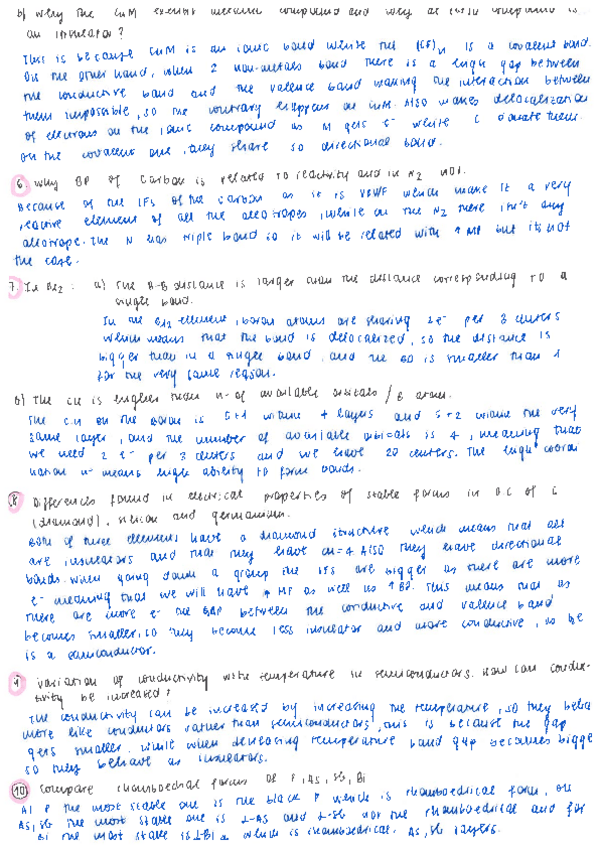 b) why the CnM exhibit metallic compound and why at (CF)n compound is
an insulator?
This is because CnM is an ionic bond while the (CF)n is a covalent bond.
On the other hand, when 2 non-metals bond there is a high gap between
the conductive band and the valence band making the interaction between
them impossible, so the contrary happens on CnM. Also makes delocalization
of electrons on the ionic compound as M gets e- while C donate them.
On the covalent one, they share so directional bond.
6. Why BP of carbon is related to reactivity and in N2 not.
Because of the IFs of the carbon as it is VBWF which make it a very
reactive element of all the allotropes, while on the N2 there isn't any
allotrope. The N has triple bond so it will be related with ↑ MP but its not
the case.
7. In B12: a) The B-B distance is larger than the distance corresponding to a
single bond.
In the B12 element, boron atoms are sharing 2e- per 3 centers
which means that the bond is delocalized, so the distance is
bigger than in a single bond, and the BO is smaller than 1
for the very same reason.
b) The CN is higher than nº of available orbitals / B atom.
The C.N on the boron is 5+1 within layers and 5+2 within the very
same layer, and the number of available orbitals is 4, meaning that
we need 2 e- per 3 centers and we have 20 centers. The high coordi
nation nº means high ability to form bonds.
8. Differences found in electrical properties of stable forms in A.C of C
(diamond), silicon and germanium.
Both of three elements have a diamond structure which means that all
are insulators and that they have CN=4 Also they have directional
bonds. When going down a group the IFs are bigger as there are more
e- meaning that we will have ↑ MP as well as ↑ BP. This means that as
there are more e- the GAP between the conductive and valence band
becomes smaller, so they become less insulator and more conductive, so Ge
is a semiconductor.
9. Variation of conductivity with temperature in semiconductors. How can conduc-
tivity be increased?
The conductivity can be increased by increasing the temperature, so they beha
more like conductors rather than semiconductors, this is because the gap
gets smaller. While when decreasing temperature band gap becomes bigge
so they behave as insulators.
10. Compare rhomboedral forms of P, As, Sb, Bi
At P the most stable one is the black P which is rhomboedral form, on
As, Sb the most stable one is α-As and α-Sb not the rhomboedrical and for
Bi the most stable is α-Bi which is rhomboedrical. As, Sb layers.